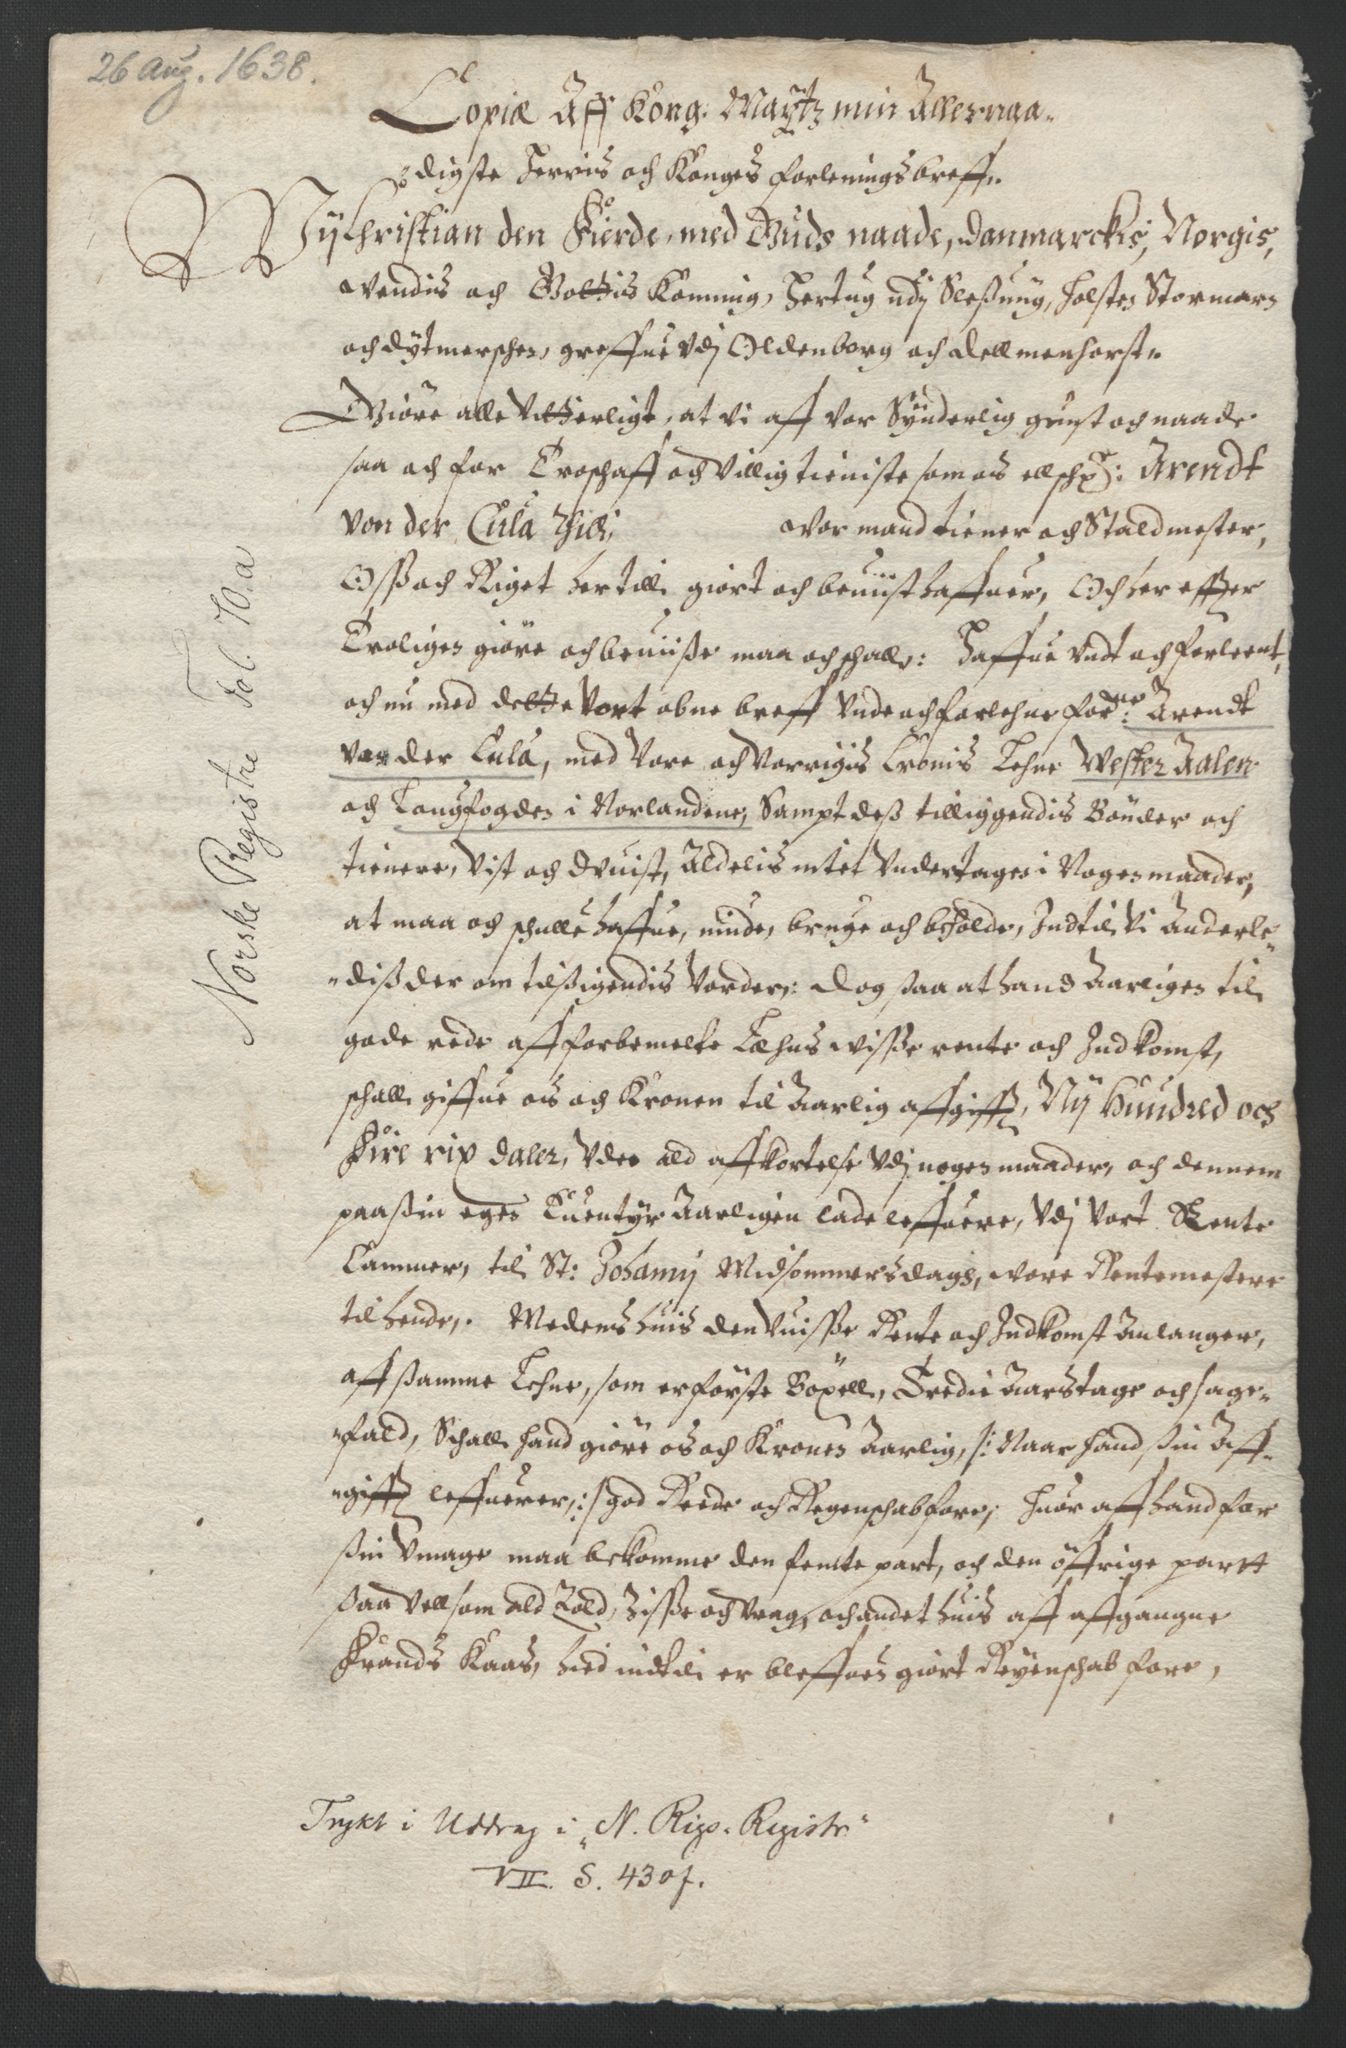 26 Aug. 1638.
Copiæ Aff Kong. Maÿtz min Allernaa-
digste Herris och Konges forleningsbreff.
Wÿ Christian den Fierde, med Guds naade, Danmarckis, Norgis,
Wendis och Gottis Konning, Hertug udj Sleßuig, Holsten Stormarn
och Dÿtmerschen, greffue udj Oldenborg och Dellmenhorst.
Giöre alle Vitterligt, at vi aff vor Sÿnderlig gunst och naade
saa och for Troschaff och Villig tieniste som os elschel: Arendt
von der Cula
vor mand tiener och Staldmester,
Oss och Riget her till giort och beuist haffuer, Och her effter
Troligen giöre och beuiisse maa och schall: Haffue undt och forleent,
och nu med dette Vort obne breff Vnde och forlehne forne: Arendt
van der Cula, med Vore och Norrigis Cronis Lehne Wester Aalen
och Langfogden i Norlandene, Sampt dess tilliggendis Bönder och
tienere, Vist och Vuist, Aldelis intet Vndertagen i Nogen maader,
at maa och schulle haffue, niude, bruge och beholde, Indtil Vi Anderle-
-diss der om tilsigendis Vorder: dog saa at hand Aarligen til
gode rede aff forbemelte Læhns visse rente och Indkomst,
schall giffue os och Kronen til Aarlig affgifft, Nÿ Hundred och
Fire rix daler, Vden ald affkortelse Vdj nogen maader, och dennem
paa sin egen Euentÿr Aarligen lade leffuere, Vdj Vort Rente
Cammer, til St: Johanni Midsommersdags, vore Rentemestere
til hende. Medens huis den Vuisse Rente och Indkomst Anlanger,
aff samme Lehne, som er förste Böxell, Tredie Aarstage och sage-
-fald, Schall hand giöre os och Kronen Aarlig, /: Naar hand sin Aff-
-gifft leffuerer, :/ god Reede och Regenschab fore, huor aff hand for
sin Vmage maa bekomme den femte part, och den öffrige part
saa Vell som ald Told, Sisse och Vrag, och andet huis aff affgangne
Frands Kaas, hid indtil er bleffuen giort Regenschab fore,
Norske Registre Fol. 70. a
Trykt i Uddrag i "N. Rigs-Registr"
VII. S. 430 f.